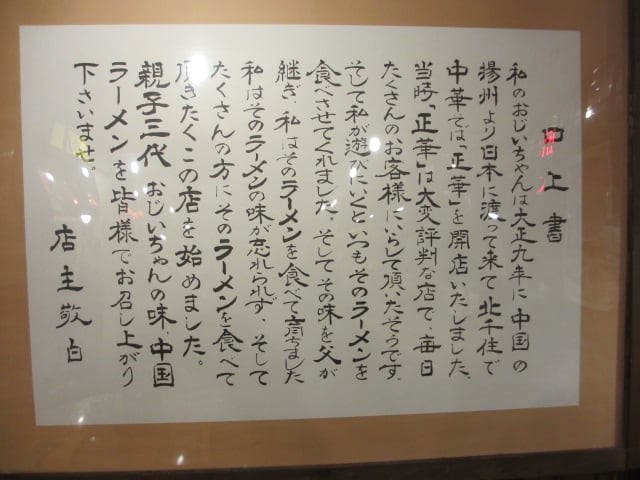 口上書
私のおじいちゃんは大正九年に中国の
揚州より日本に渡って来て北千住で
中華そば「正華」を開店いたしました、
当時「正華」は大変評判な店で、毎日
たくさんのお客様にいらして頂いたそうです、
そして私が遊びにいくといつもそのラーメンを
食べさせてくれました、そしてその味を父が
継ぎ、私はそのラーメンを食べて育ちました
私はそのラーメンの味が忘れられず、そして
たくさんの方にそのラーメンを食べて
頂きたくこの店を始めました。
親子三代 おじいちゃんの味、中国
ラーメンを皆様でお召し上がり
下さいませ。
店主敬白